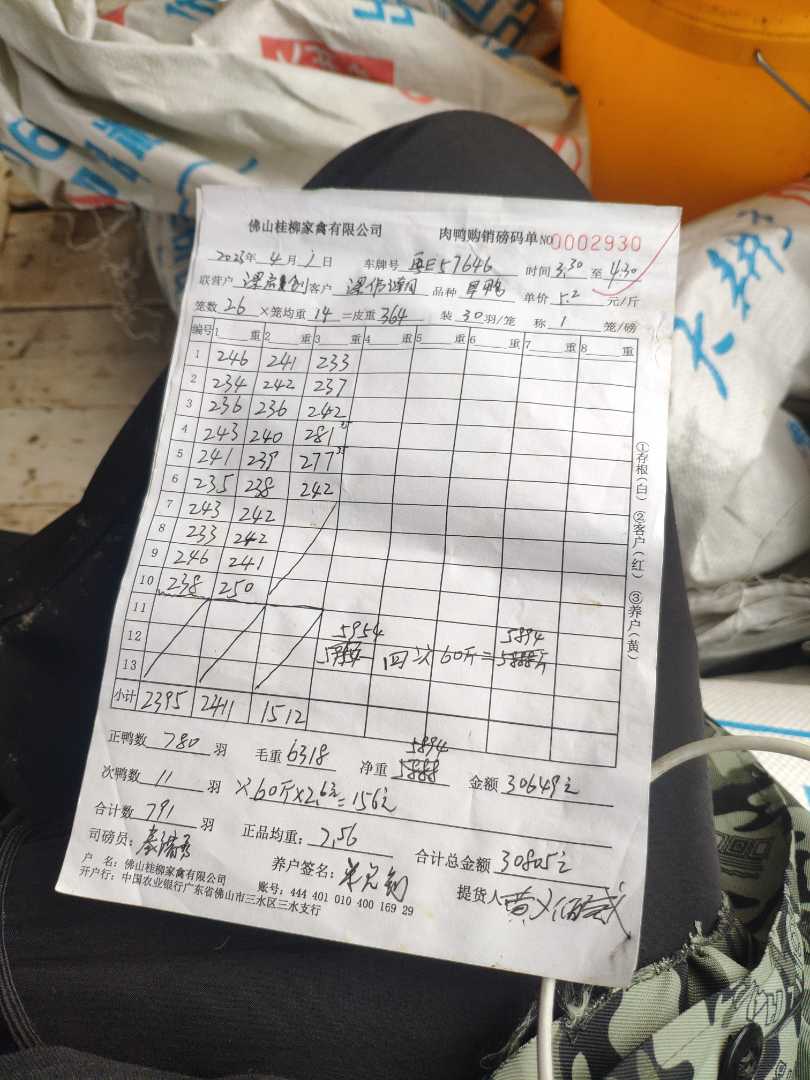 佛山桂柳家禽有限公司 肉鸭购销磅码单 NO 0002930
2023年 4月 1日 车牌号 粤E57646 时间 3:30 至 4:30
联营户 客户 品种 旱鸭 单价 5.2 元/斤
笼数 26 ×笼均重 14 =皮重 364 装 30 羽/笼 称 1 笼/磅
编号 1 重 2 重 3 重 4 重 5 重 6 重 7 重 8 重
1 246 241 233
2 234 242 237
3 236 236 242
4 243 240 281
5 241 239 277
6 235 238 242
7 243 242
8 233 242
9 246 241
10 238 250
11
12 5954 5894
13 四次 60斤=
小计 2395 2411 1512
正鸭数 780 羽 毛重 6318 净重 5888 5894 金额 30649元
次鸭数 11 羽 次60斤×2.6元=156元
合计数 791 羽 正品均重: 7.56 合计总金额 30805元
司磅员: 养户签名: 提货人
户 名: 佛山桂柳家禽有限公司 账号: 444 401 010 400 169 29
开户行: 中国农业银行广东省佛山市三水区三水支行
①存根(白) ②客户(红) ③养户(黄)